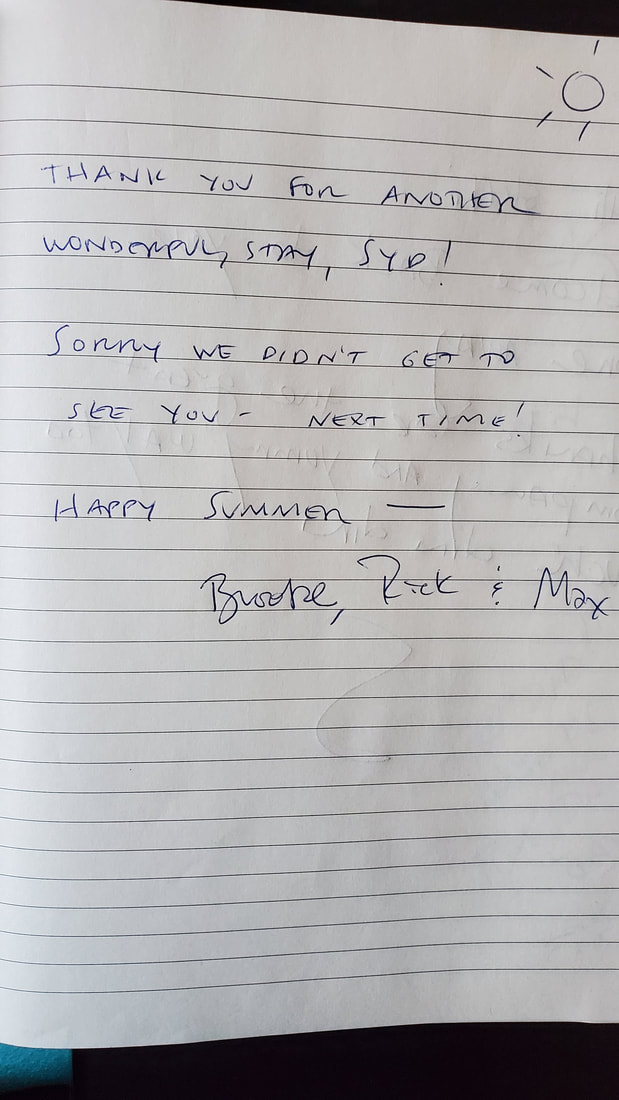 THANK YOU FOR ANOTHER
WONDERFUL STAY, SYD!
SORRY WE DIDN'T GET TO
SEE YOU - NEXT TIME!
HAPPY SUMMER —
Brooke, Rick & Max